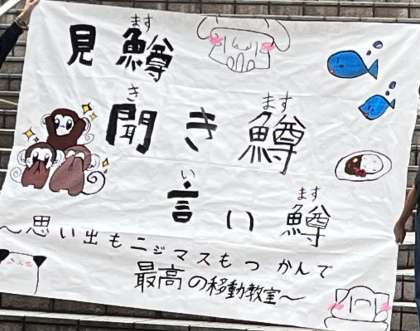 ます
見鱒
き ます
聞き鱒
い ます
言い鱒
〜思い出もニジマスもつかんで
最高の移動教室〜